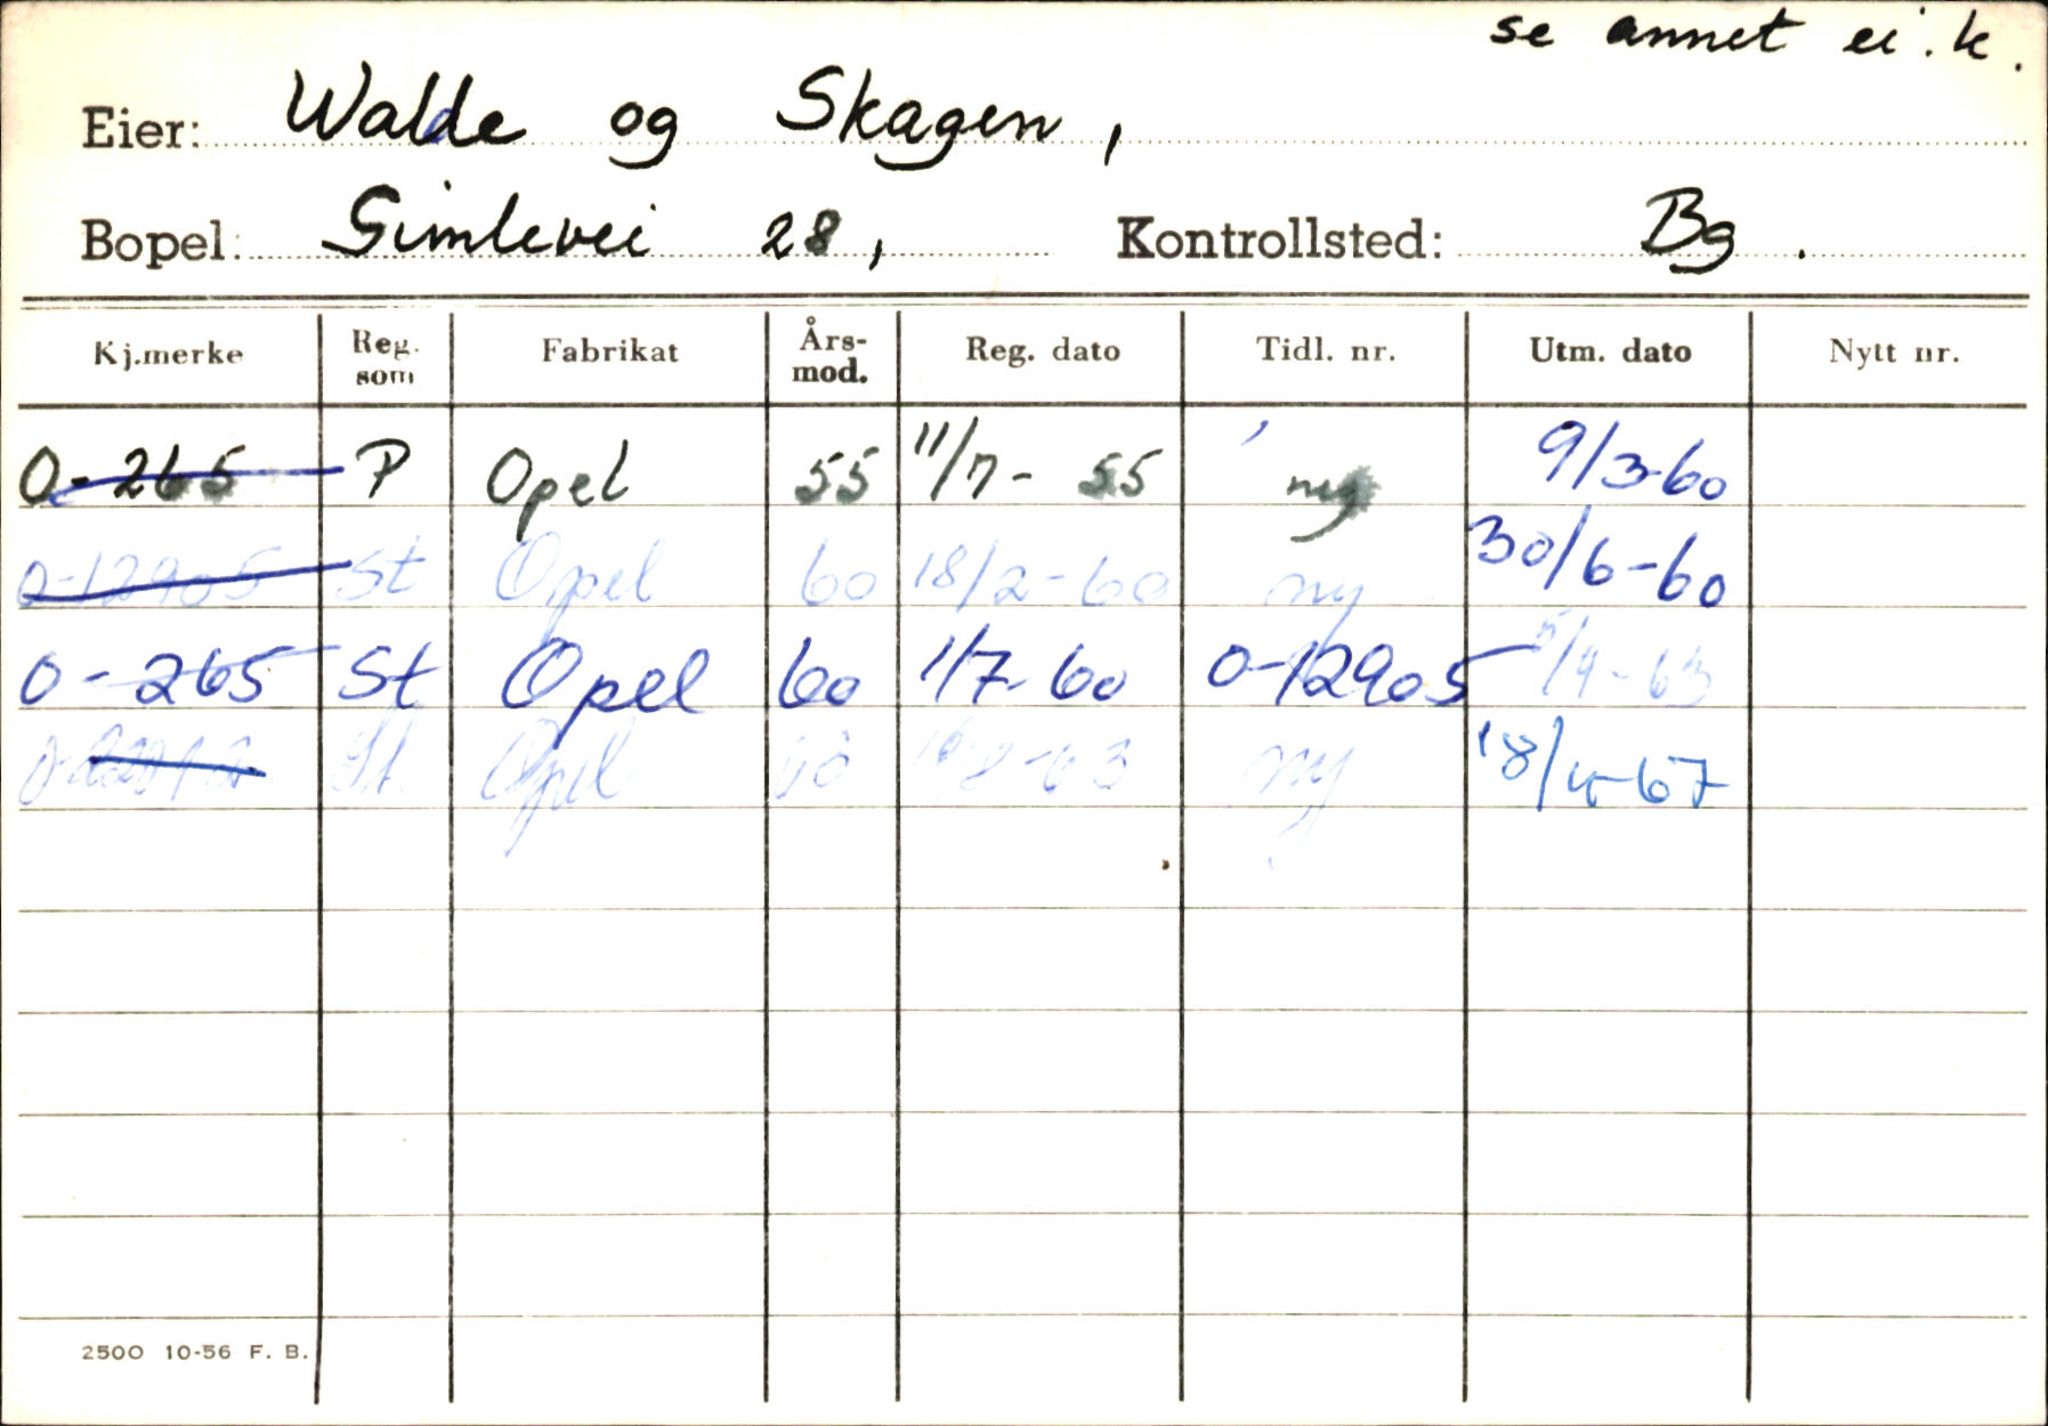 se annet ei. k.
Eier: Walde og Skagen,
Bopel: Gimlevei 28, Kontrollsted: Bg.
Kj.merke Reg. som Fabrikat Års-mod. Reg. dato Tidl. nr. Utm. dato Nytt nr.
O-265 P Opel 55 11/7-55 ny 9/3-60
O-12905 St Opel 60 18/2-60 ny 30/6-60
O-265 St Opel 60 1/7-60 O-12905 5/9-63
St. Opel ny 18/4-67
2500 10-56 F. B.